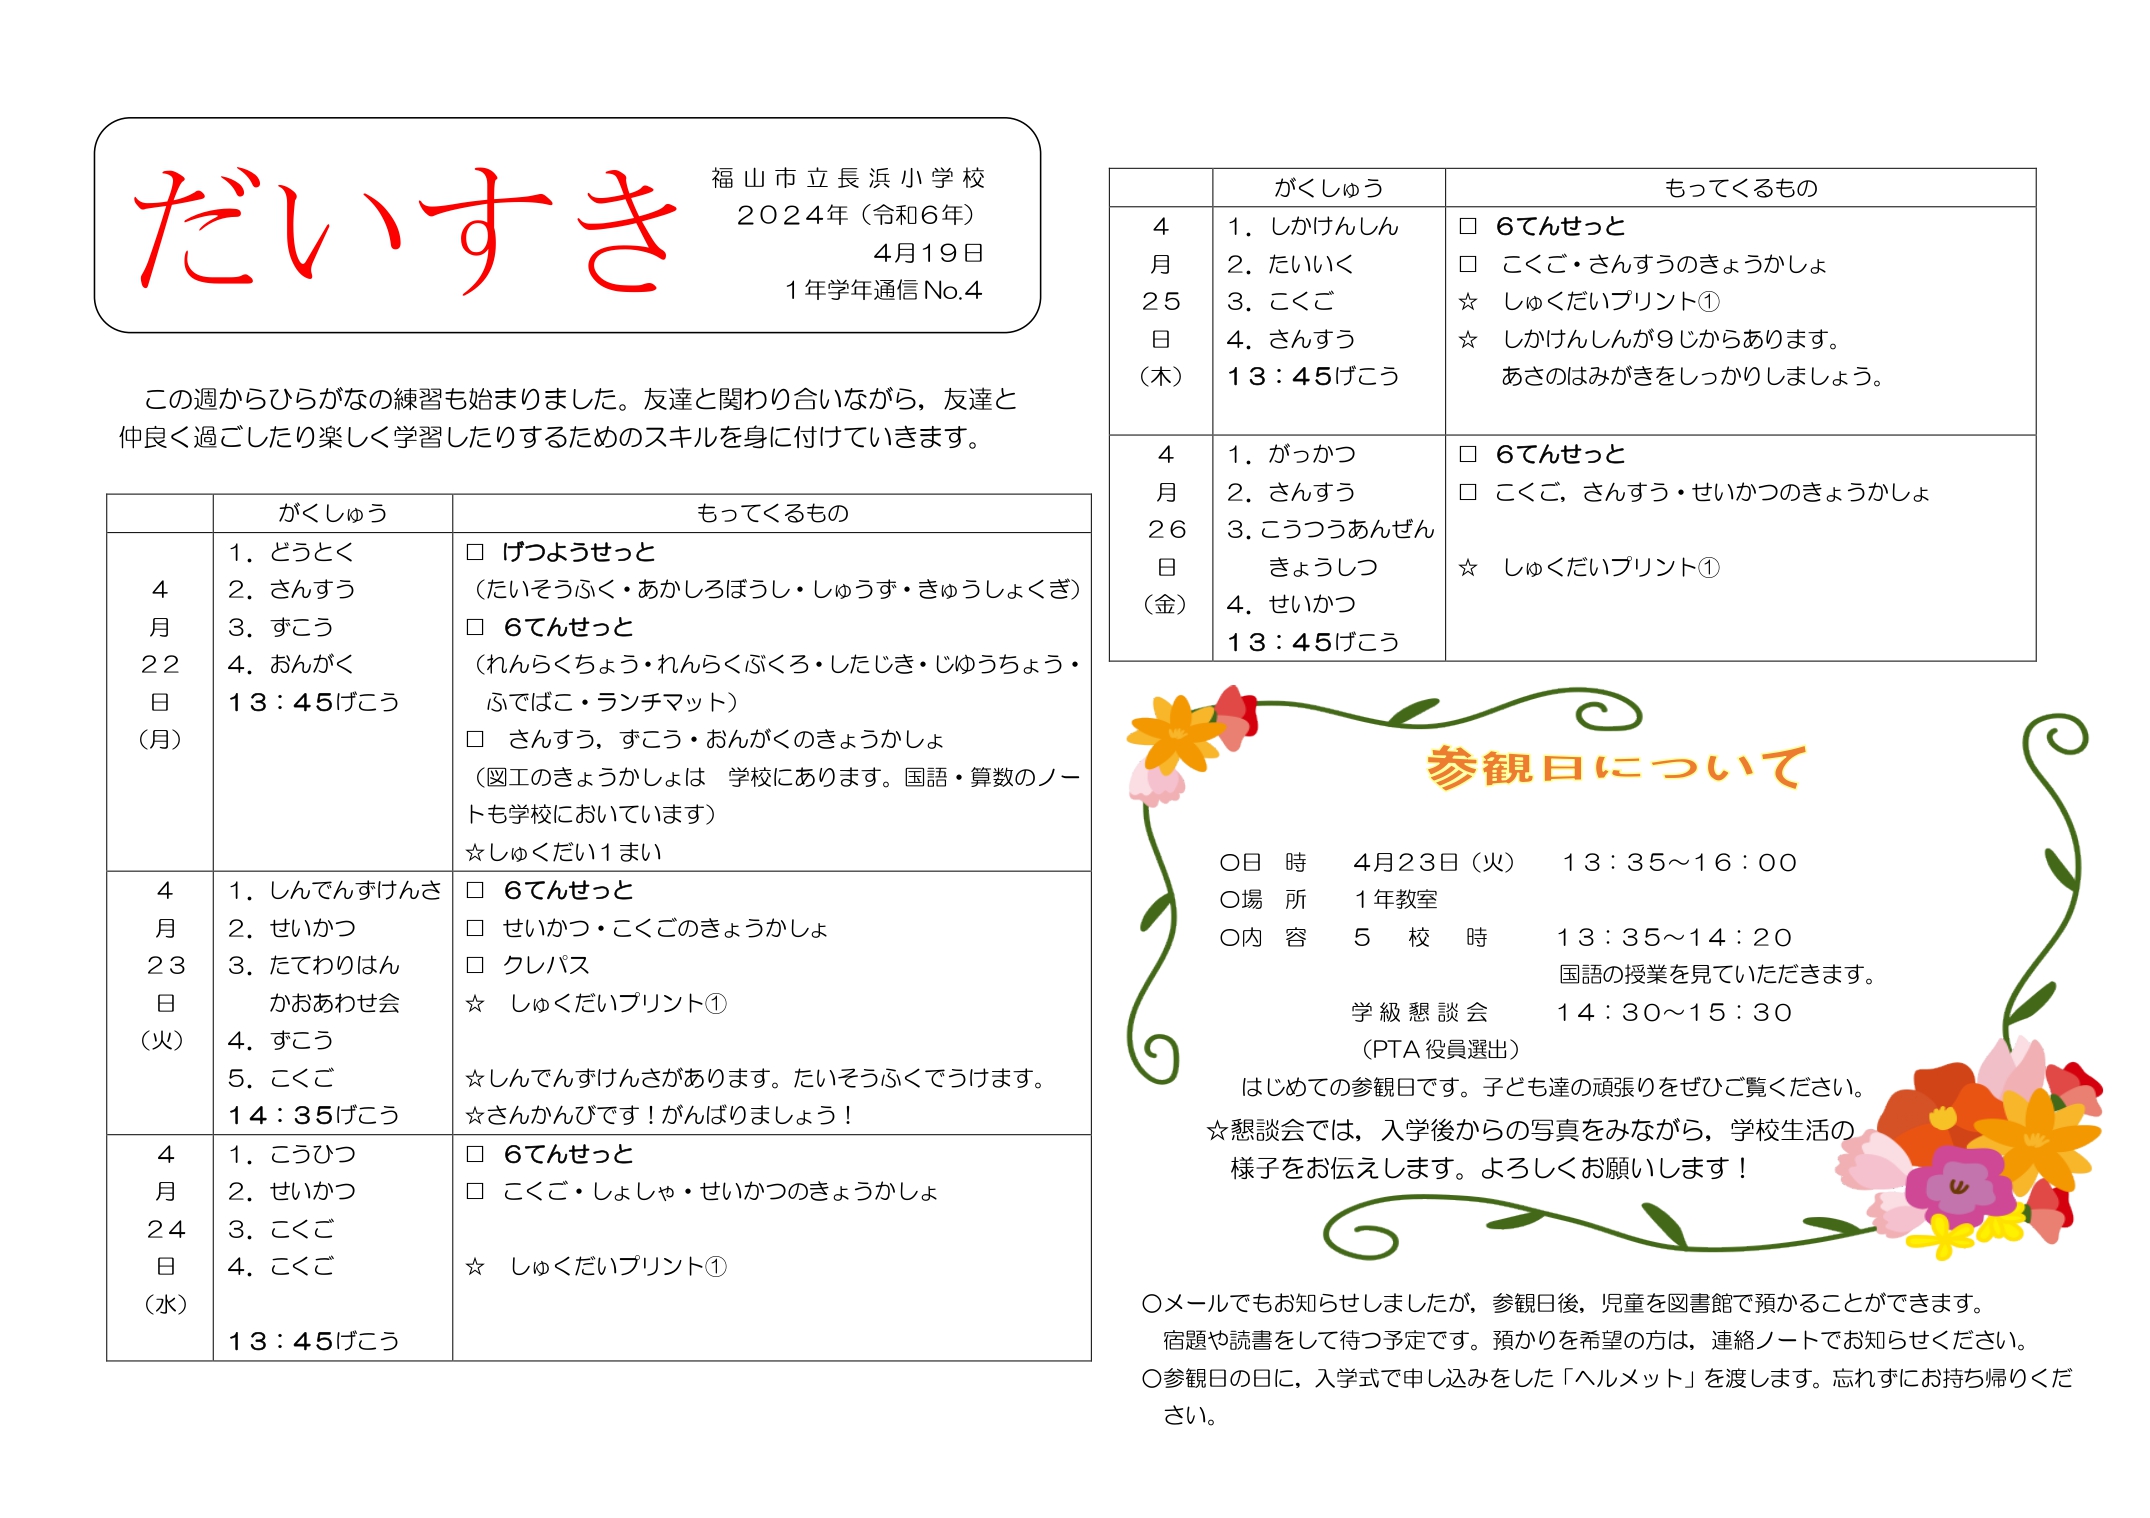 だいすき
福山市立長浜小学校
２０２４年（令和６年）
４月１９日
１年学年通信 No.4
この週からひらがなの練習も始まりました。友達と関わり合いながら，友達と
仲良く過ごしたり楽しく学習したりするためのスキルを身に付けていきます。
がくしゅう　もってくるもの
４月２２日（月）
１．どうとく
２．さんすう
３．ずこう
４．おんがく
１３：４５げこう
□ げつようせっと
（たいそうふく・あかしろぼうし・しゅうず・きゅうしょくぎ）
□ ６てんせっと
（れんらくちょう・れんらくぶくろ・したじき・じゆうちょう・
ふでばこ・ランチマット）
□　さんすう，ずこう・おんがくのきょうかしょ
（図工のきょうかしょは　学校にあります。国語・算数のノー
トも学校においています）
☆しゅくだい１まい
４月２３日（火）
１．しんでんずけんさ
２．せいかつ
３．たてわりはん
かおあわせ会
４．ずこう
５．こくご
１４：３５げこう
□ ６てんせっと
□ せいかつ・こくごのきょうかしょ
□ クレパス
☆　しゅくだいプリント①
☆しんでんずけんさがあります。たいそうふくでうけます。
☆さんかんびです！がんばりましょう！
４月２４日（水）
１．こうひつ
２．せいかつ
３．こくご
４．こくご
１３：４５げこう
□ ６てんせっと
□ こくご・しょしゃ・せいかつのきょうかしょ
☆　しゅくだいプリント①
がくしゅう　もってくるもの
４月２５日（木）
１．しかけんしん
２．たいいく
３．こくご
４．さんすう
１３：４５げこう
□ ６てんせっと
□　こくご・さんすうのきょうかしょ
☆　しゅくだいプリント①
☆　しかけんしんが９じからあります。
あさのはみがきをしっかりしましょう。
４月２６日（金）
１．がっかつ
２．さんすう
３．こうつうあんぜん
きょうしつ
４．せいかつ
１３：４５げこう
□ ６てんせっと
□ こくご，さんすう・せいかつのきょうかしょ
☆　しゅくだいプリント①
参観日について
○日　時　４月２３日（火）　１３：３５～１６：００
○場　所　１年教室
○内　容　５　校　時　１３：３５～１４：２０
国語の授業を見ていただきます。
学級懇談会　１４：３０～１５：３０
（PTA 役員選出）
はじめての参観日です。子ども達の頑張りをぜひご覧ください。
☆懇談会では，入学後からの写真をみながら，学校生活の
様子をお伝えします。よろしくお願いします！
○メールでもお知らせしましたが，参観日後，児童を図書館で預かることができます。
宿題や読書をして待つ予定です。預かりを希望の方は，連絡ノートでお知らせください。
○参観日の日に，入学式で申し込みをした「ヘルメット」を渡します。忘れずにお持ち帰りくだ
さい。